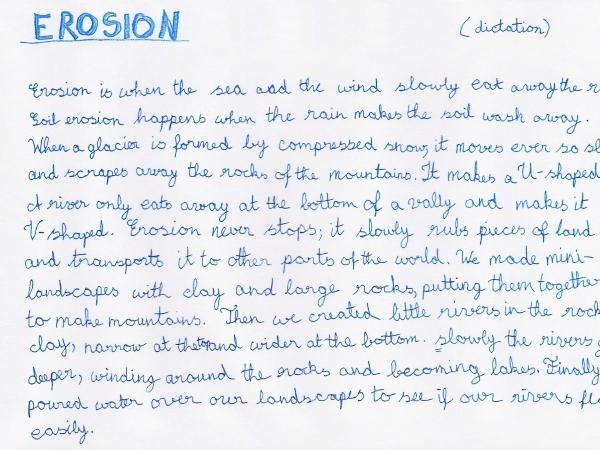 EROSION (dictation)
Erosion is when the sea and the wind slowly eat away the
Soil erosion happens when the rain makes the soil wash away.
When a glacier is formed by compressed snow, it moves ever so
and scrapes away the rocks of the mountains. It makes a U-shaped
A river only eats away at the bottom of a vally and makes it
V-shaped. Erosion never stops; it slowly rubs pieces of land
and transports it to other parts of the world. We made mini-
landscapes with clay and large rocks, putting them together
to make mountains. Then we created little rivers in the
clay, narrow at the top and wider at the bottom. slowly the rivers
deeper, winding around the rocks and becoming lakes. Finally
poured water over our landscapes to see if our rivers
easily.